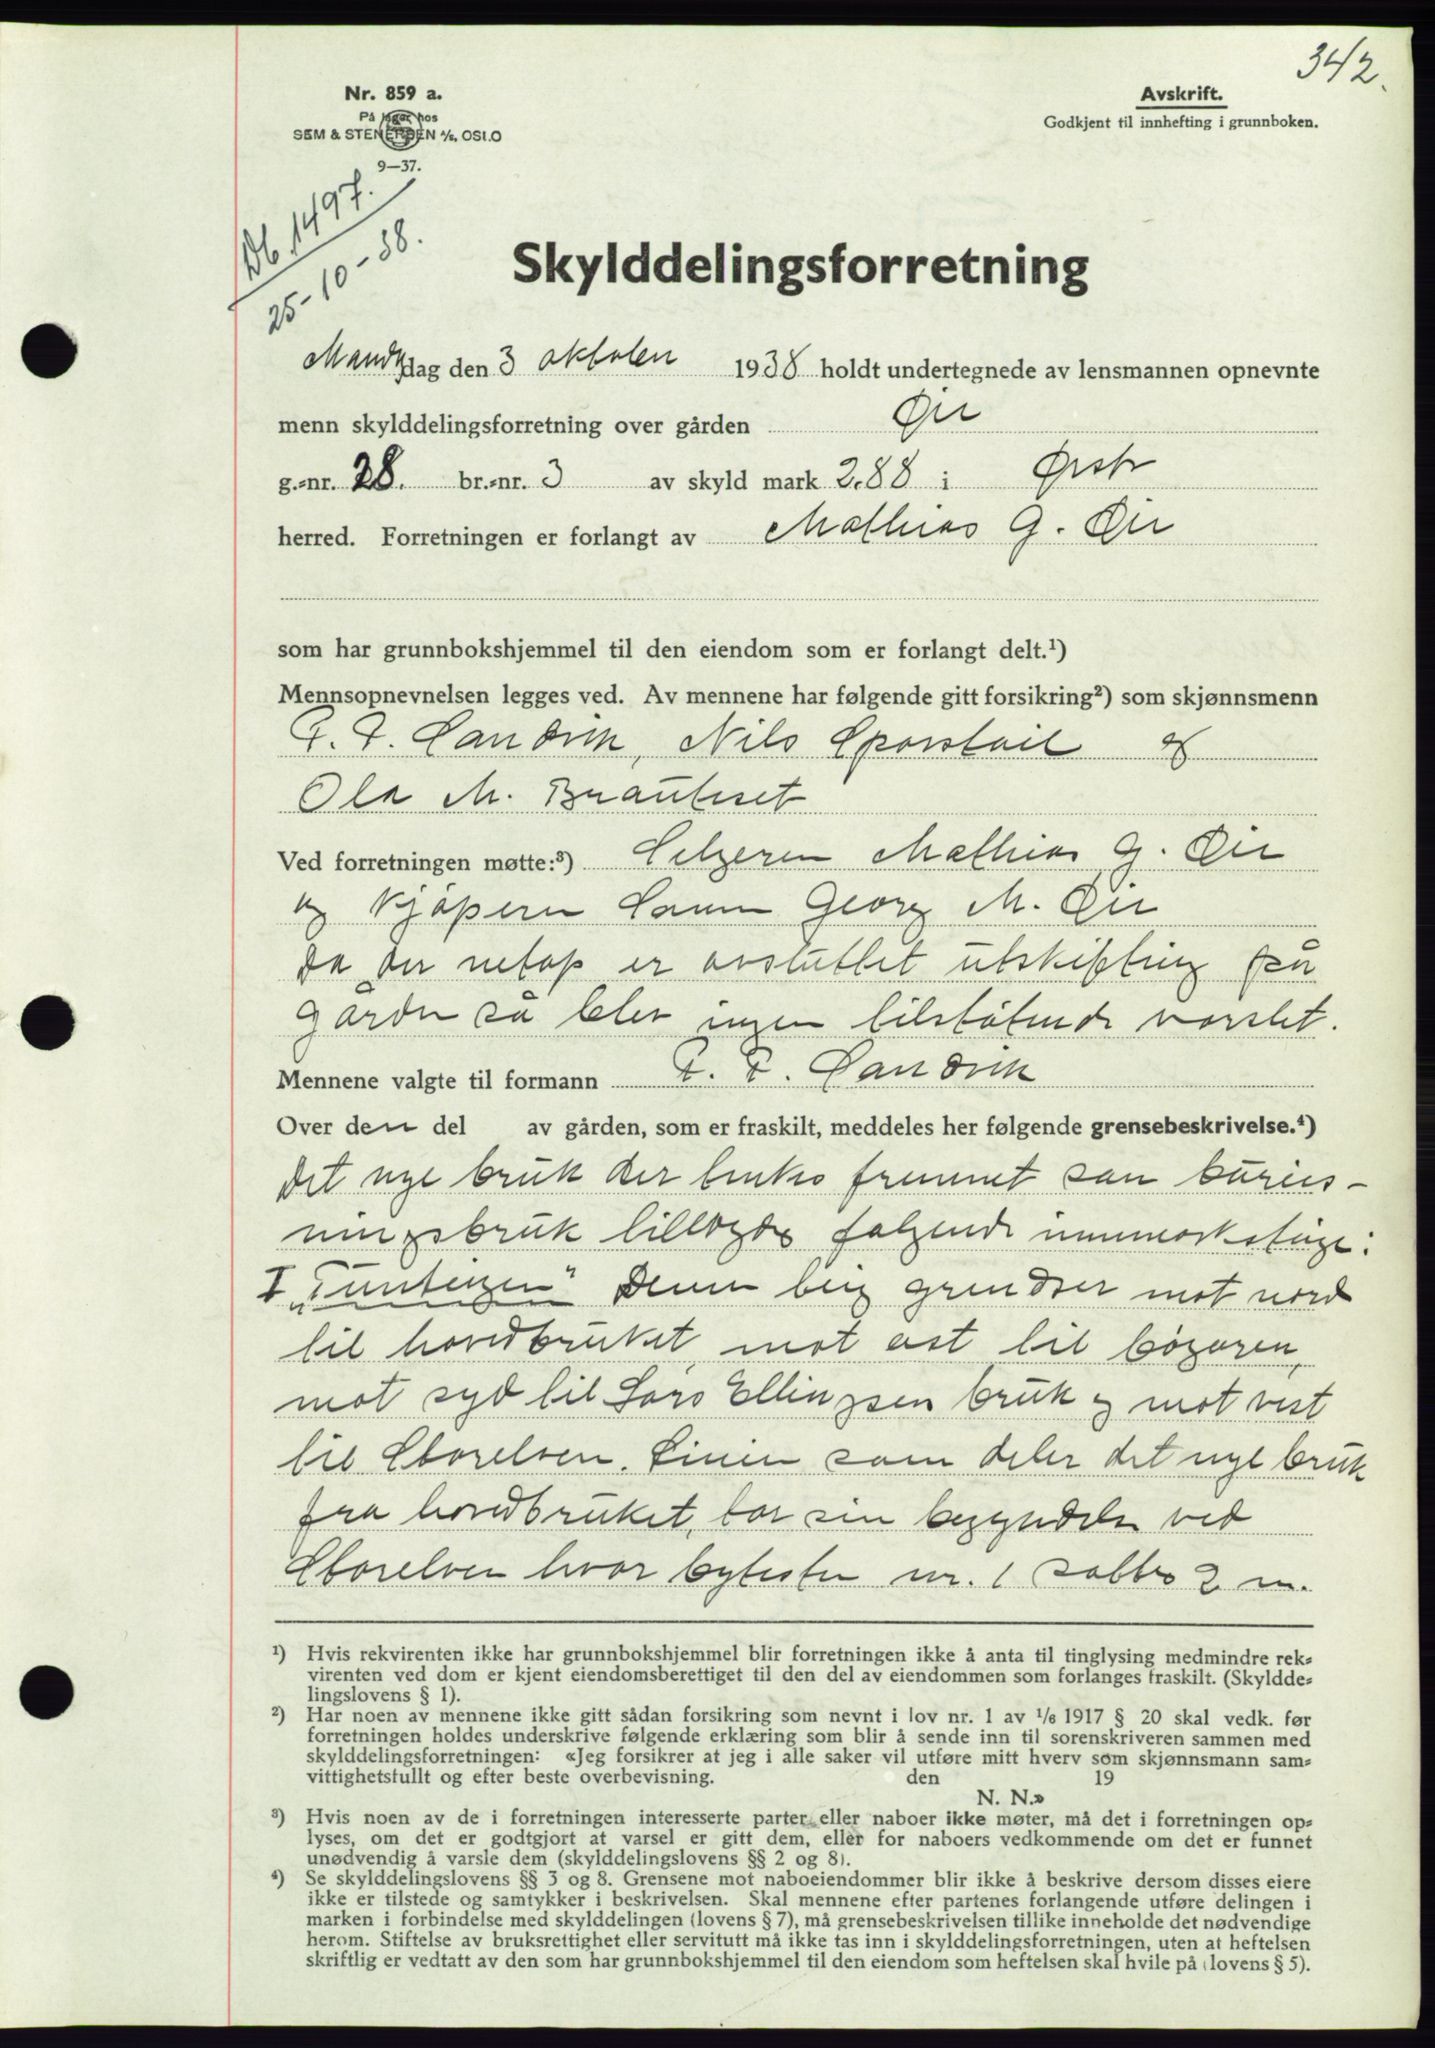 342.
Nr. 859 a.
På lager hos
SEM & STENERSEN A/S, OSLO
9—37.
Avskrift.
Godkjent til innhefting i grunnboken.
Db. 1497.
25-10-38.
Skylddelingsforretning
Mandagdag den 3 oktober 1938 holdt undertegnede av lensmannen opnevnte
menn skylddelingsforretning over gården Øie
g.=nr. 28. br.=nr. 3 av skyld mark 2.88 i Ørsta
herred. Forretningen er forlangt av Mathias G. Øie
som har grunnbokshjemmel til den eiendom som er forlangt delt.¹)
Mennsopnevnelsen legges ved. Av mennene har følgende gitt forsikring²) som skjønnsmenn
P. P. Sandvik, Nils Sporstøil og
Ola M. Brauteset
Ved forretningen møtte:³) Selgeren Mathias G. Øie
og kjøperen sønnen Georg M. Øie
Da der netop er avsluttet utskifting på
gården så blev ingen tilstøtende varslet.
Mennene valgte til formann P. P. Sandvik
Over den del av gården, som er fraskilt, meddeles her følgende grensebeskrivelse.⁴)
Det nye bruk der tenkes fremmet som bureis-
ningsbruk tillegges følgende innmarksteige:
I „Tunteigen“ Denne teig grendser mot nord
til hovedbruket, mot øst til bøgaren,
mot syd til Lars Ellingsen bruk og mot vest
til Storelven. Linien som deler det nye bruk
fra hovedbruket, tar sin begyndelse ved
Storelven hvor bytesten nr. 1 sattes 2 m.
¹) Hvis rekvirenten ikke har grunnbokshjemmel blir forretningen ikke å anta til tinglysing medmindre rek=
virenten ved dom er kjent eiendomsberettiget til den del av eiendommen som forlanges fraskilt. (Skyldde=
lingslovens § 1).
²) Har noen av mennene ikke gitt sådan forsikring som nevnt i lov nr. 1 av 1/6 1917 § 20 skal vedk. før
forretningen holdes underskrive følgende erklæring som blir å sende inn til sorenskriveren sammen med
skylddelingsforretningen: «Jeg forsikrer at jeg i alle saker vil utføre mitt hverv som skjønnsmann sam=
vittighetsfullt og efter beste overbevisning. den 19
N. N.»
³) Hvis noen av de i forretningen interesserte parter eller naboer ikke møter, må det i forretningen op=
lyses, om det er godtgjort at varsel er gitt dem, eller for naboers vedkommende om det er funnet
unødvendig å varsle dem (skylddelingslovens §§ 2 og 8).
⁴) Se skylddelingslovens §§ 3 og 8. Grensene mot naboeiendommer blir ikke å beskrive dersom disses eiere
ikke er tilstede og samtykker i beskrivelsen. Skal mennene efter partenes forlangende utføre delingen i
marken i forbindelse med skylddelingen (lovens § 7), må grensebeskrivelsen tillike inneholde det nødvendige
herom. Stiftelse av bruksrettighet eller servitutt må ikke tas inn i skylddelingsforretningen, uten at heftelsen
skriftlig er vedtatt av den som har grunnbokshjemmel til den eiendom som heftelsen skal hvile på (lovens § 5).